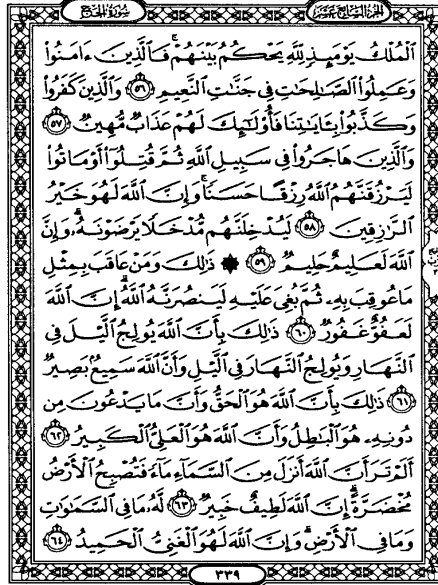 سورة الحج
الجزء السابع عشر
الْمُلْكُ يَوْمَئِذٍ لِّلَّهِ يَحْكُمُ بَيْنَهُمْ ۚ فَالَّذِينَ ءَامَنُوا
وَعَمِلُوا الصَّٰلِحَٰتِ فِي جَنَّٰتِ النَّعِيمِ ٥٦ وَالَّذِينَ كَفَرُوا
وَكَذَّبُوا بِـَٔايَٰتِنَا فَأُو۟لَٰٓئِكَ لَهُمْ عَذَابٌ مُّهِينٌ ٥٧
وَالَّذِينَ هَاجَرُوا فِي سَبِيلِ اللَّهِ ثُمَّ قُتِلُوٓا أَوْ مَاتُوا
لَيَرْزُقَنَّهُمُ اللَّهُ رِزْقًا حَسَنًا ۚ وَإِنَّ اللَّهَ لَهُوَ خَيْرُ
الرَّٰزِقِينَ ٥٨ لَيُدْخِلَنَّهُم مُّدْخَلًا يَرْضَوْنَهُۥ ۗ وَإِنَّ
اللَّهَ لَعَلِيمٌ حَلِيمٌ ٥٩ ۞ ذَٰلِكَ وَمَنْ عَاقَبَ بِمِثْلِ
مَا عُوقِبَ بِهِۦ ثُمَّ بُغِيَ عَلَيْهِ لَيَنصُرَنَّهُ اللَّهُ ۗ إِنَّ اللَّهَ
لَعَفُوٌّ غَفُورٌ ٦٠ ذَٰلِكَ بِأَنَّ اللَّهَ يُولِجُ الَّيْلَ فِي
النَّهَارِ وَيُولِجُ النَّهَارَ فِي الَّيْلِ وَأَنَّ اللَّهَ سَمِيعٌۢ بَصِيرٌ
٦١ ذَٰلِكَ بِأَنَّ اللَّهَ هُوَ الْحَقُّ وَأَنَّ مَا يَدْعُونَ مِن
دُونِهِۦ هُوَ الْبَٰطِلُ وَأَنَّ اللَّهَ هُوَ الْعَلِيُّ الْكَبِيرُ ٦٢
أَلَمْ تَرَ أَنَّ اللَّهَ أَنزَلَ مِنَ السَّمَآءِ مَآءً فَتُصْبِحُ الْأَرْضُ
مُخْضَرَّةً ۗ إِنَّ اللَّهَ لَطِيفٌ خَبِيرٌ ٦٣ لَّهُۥ مَا فِي السَّمَٰوَٰتِ
وَمَا فِي الْأَرْضِ ۗ وَإِنَّ اللَّهَ لَهُوَ الْغَنِيُّ الْحَمِيدُ ٦٤
٣٣٩